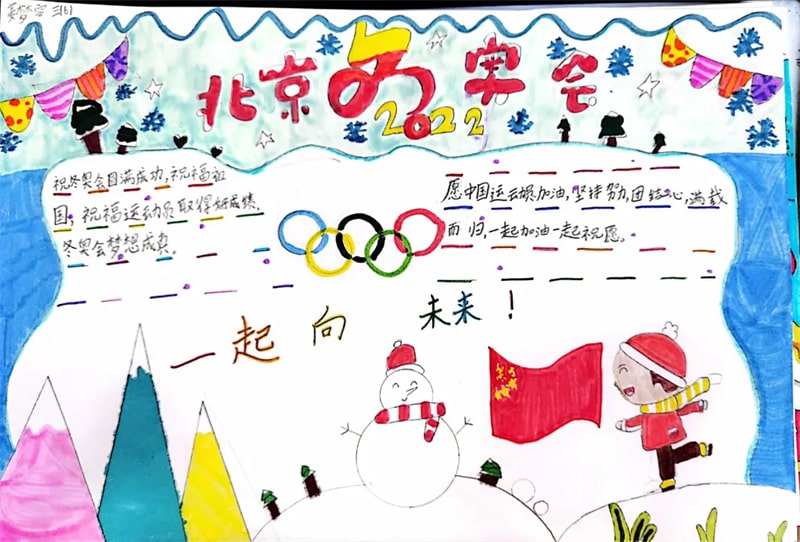 三
北京冬奥会
2022
祝冬奥会圆满成功,祝福祖
国,祝福运动员取得好成绩,
冬奥会梦想成真。
愿中国运动员加油,坚持努力,团结一心,满载
而归,一起加油一起祝愿。
一起向未来!